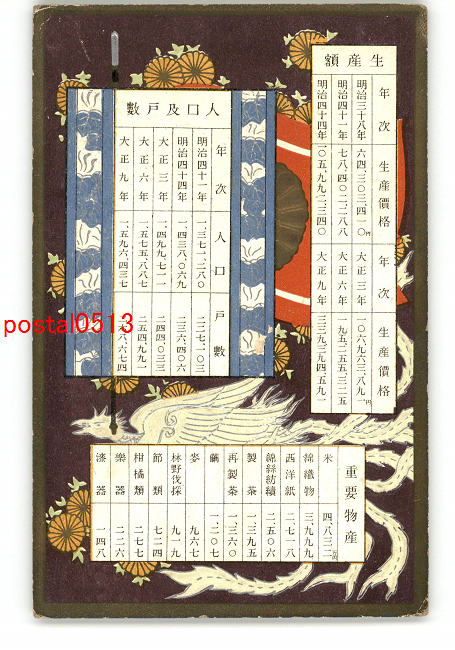 生產額
年次 生產價格 年次 生產價格
明治三十八年 六四、三〇三、四一〇円 大正三年 一〇六、九六三、八九一円
明治四十一年 七八、四〇二、二八八 大正六年 一九五、二五五、三二五
明治四十四年 一〇五、九九二、三四〇 大正九年 三三九、三九四、五九二
人口及戶數
年次 人口 戶數
明治四十一年 一、三七一、二八〇 二三七、一〇三
明治四十四年 一、四三八、〇六九 二三六、四〇六
大正三年 一、四九九、七一一 二四四、〇三三
大正六年 一、五七五、八八七 二五四、九九一
大正九年 一、五九六、四三七
重要物産
米 四、八三二
綿織物 三、九九九
西洋紙 二、七一八
綿絲紡績 二、五〇六
製茶 一、三九五
再製茶 一、三六〇
繭 一、二〇七
麥 九六七
林野伐採 九一九
節類 七二四
柑橘類 二七七
樂器 二二六
漆器 一四八
postal0513